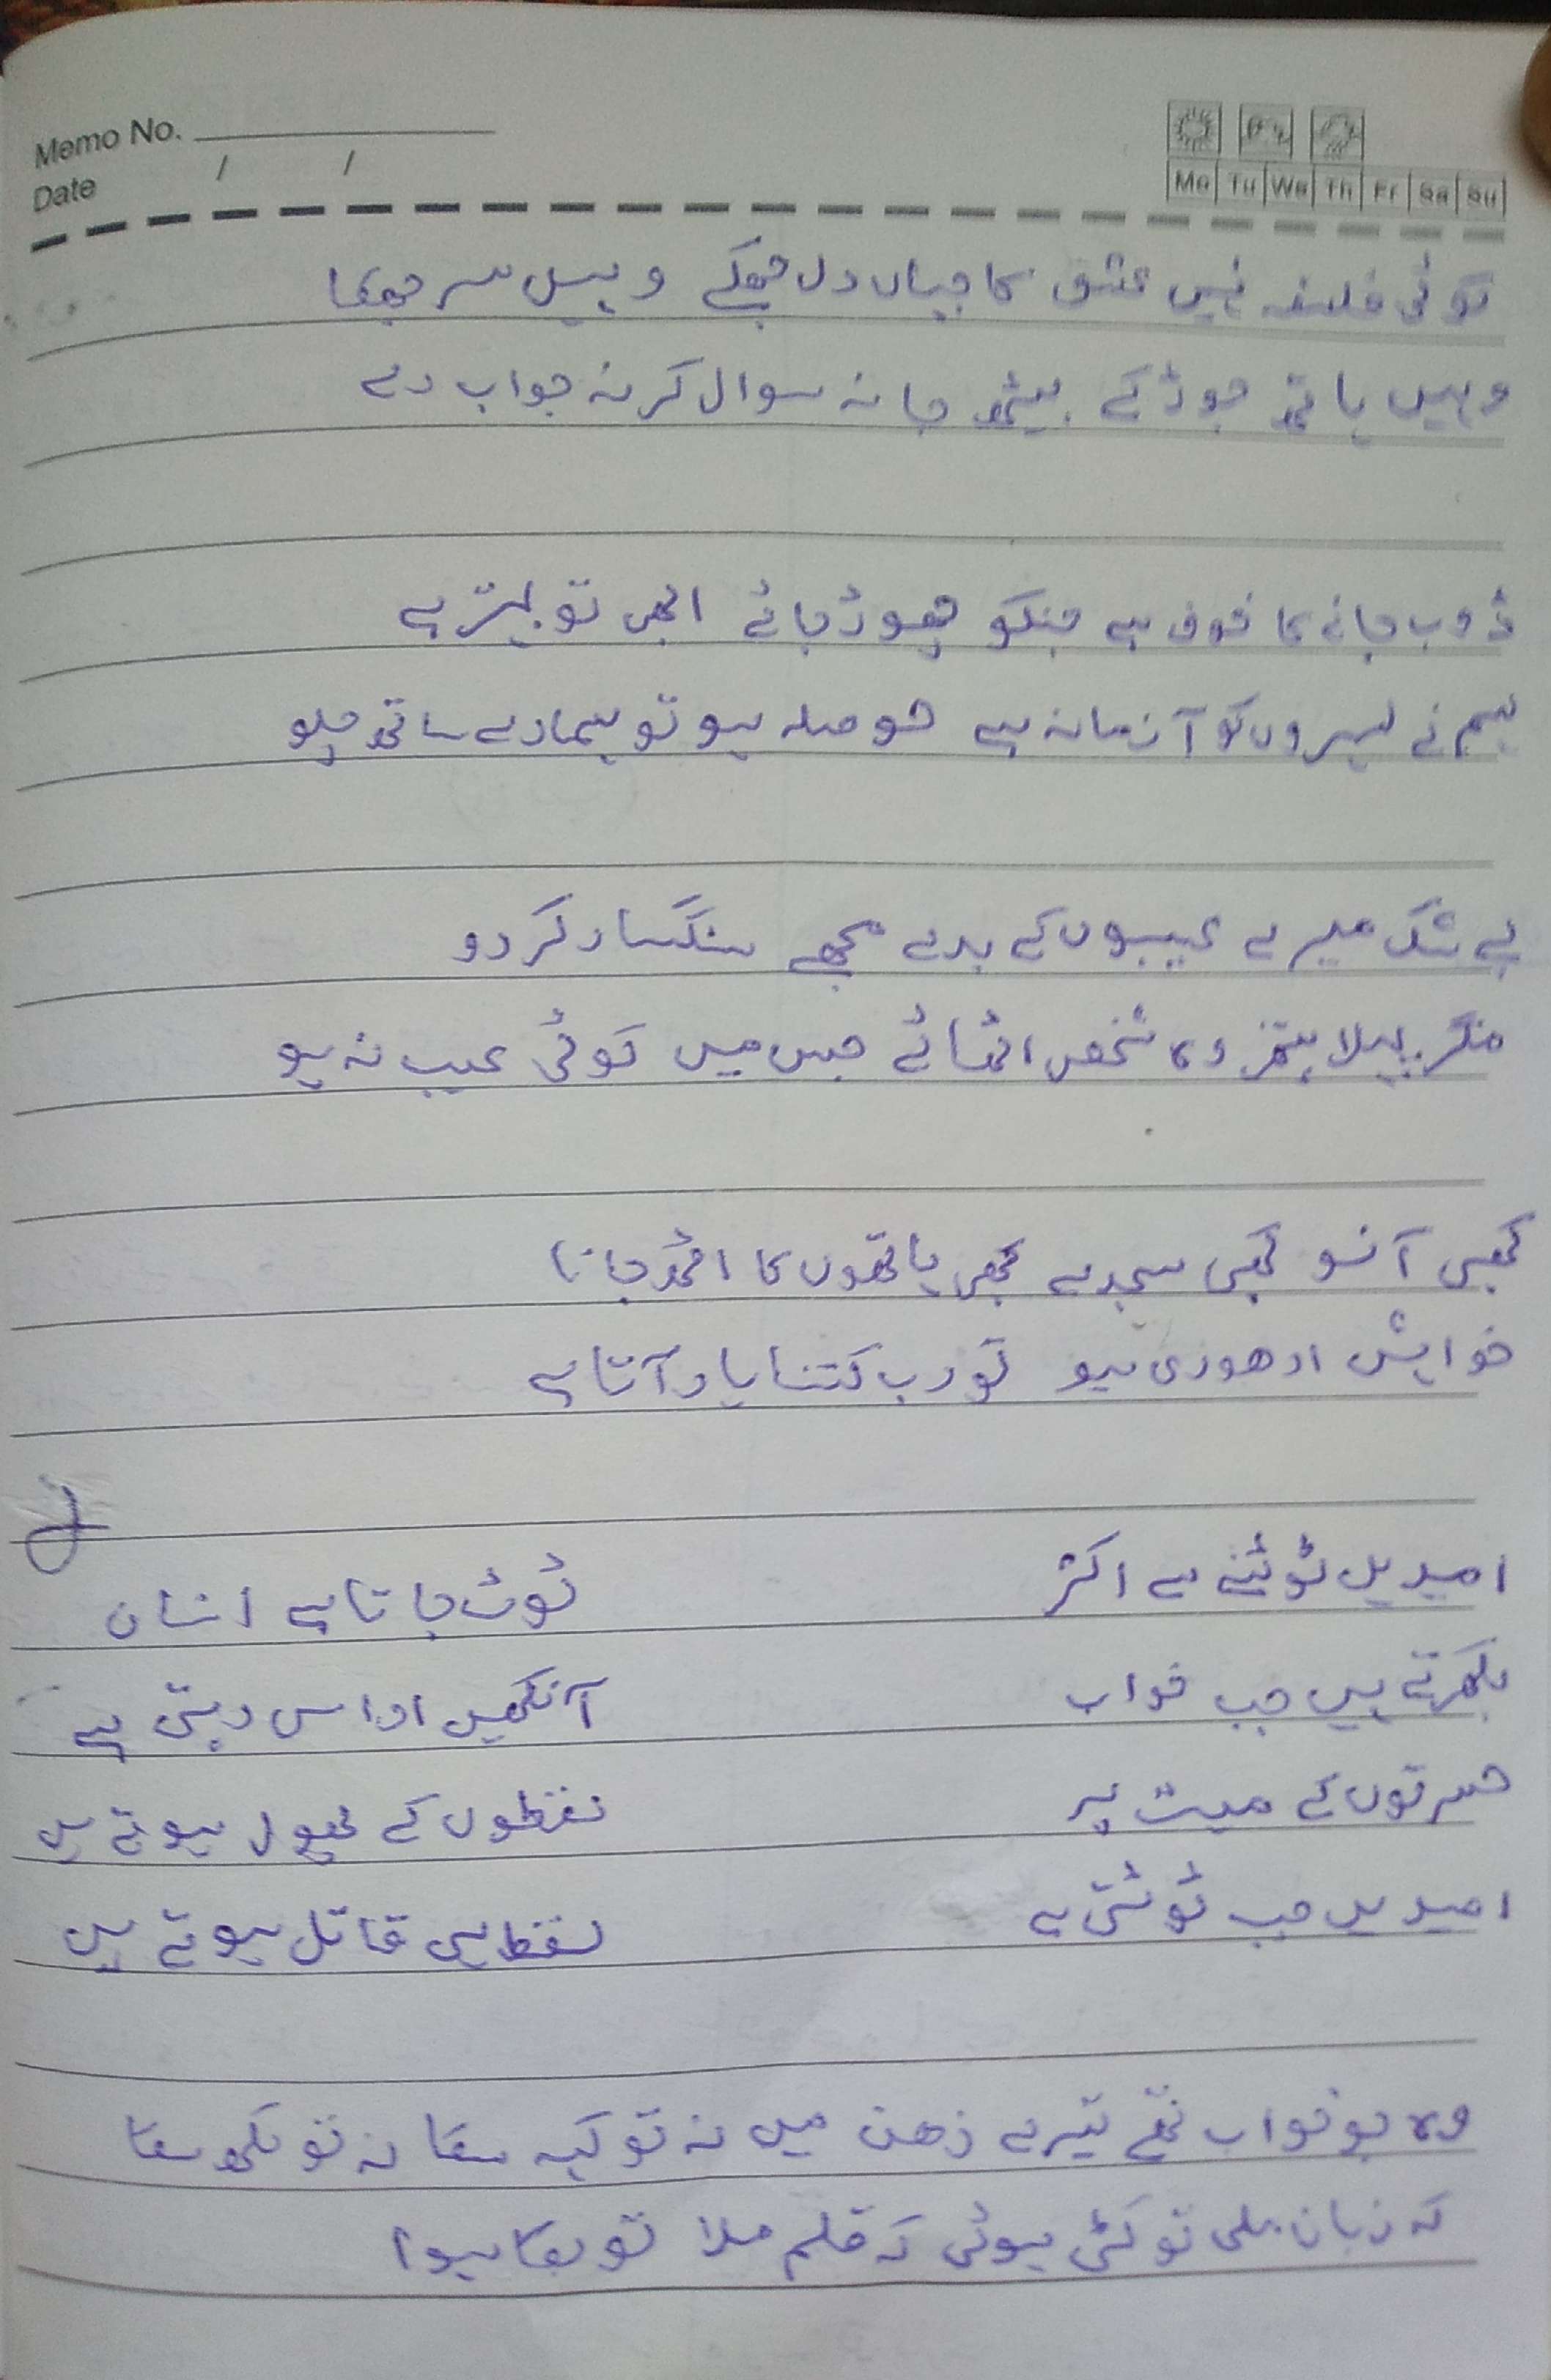 Memo No.
Date / /
Mo Tu We Th Fr Sa Su
کوئی فلسفہ نہیں عشق کا جہاں دل جھکے وہیں سر جھکا
وہیں ہاتھ جوڑ کے بیٹھ جا نہ سوال کر نہ جواب دے
ڈوب جانے کا خوف ہے جنکو چھوڑ جائے ابھی تو بہتر ہے
ہم نے لہروں کو آزمانہ ہے حوصلہ ہو تو ہمارے ساتھ چلو
بے شک میرے عیبوں کے بدلے مجھے سنگسار کر دو
مگر پہلا پتھر وہ شخص اٹھائے جس میں کوئی عیب نہ ہو
کبھی آنسو کبھی سجدے کبھی ہاتھوں کا اٹھ جانا
خواہش ادھوری ہو تو رب کتنا یاد آتا ہے
امیدیں ٹوٹنے سے اکثر ٹوٹ جاتا ہے انسان
بکھرتے ہیں جب خواب آنکھیں اداس رہتی ہے
حسرتوں کے میت پر لفظوں کے پھول ہوتے ہیں
امیدیں جب ٹوٹتی ہے لفظ ہی قاتل ہوتے ہیں
وہ جو خواب تھے تیرے ذھن میں نہ تو کہہ سکا نہ تو لکھ سکا
کہ زبان ملی تو کٹی ہوئی کہ قلم ملا تو بکا ہوا